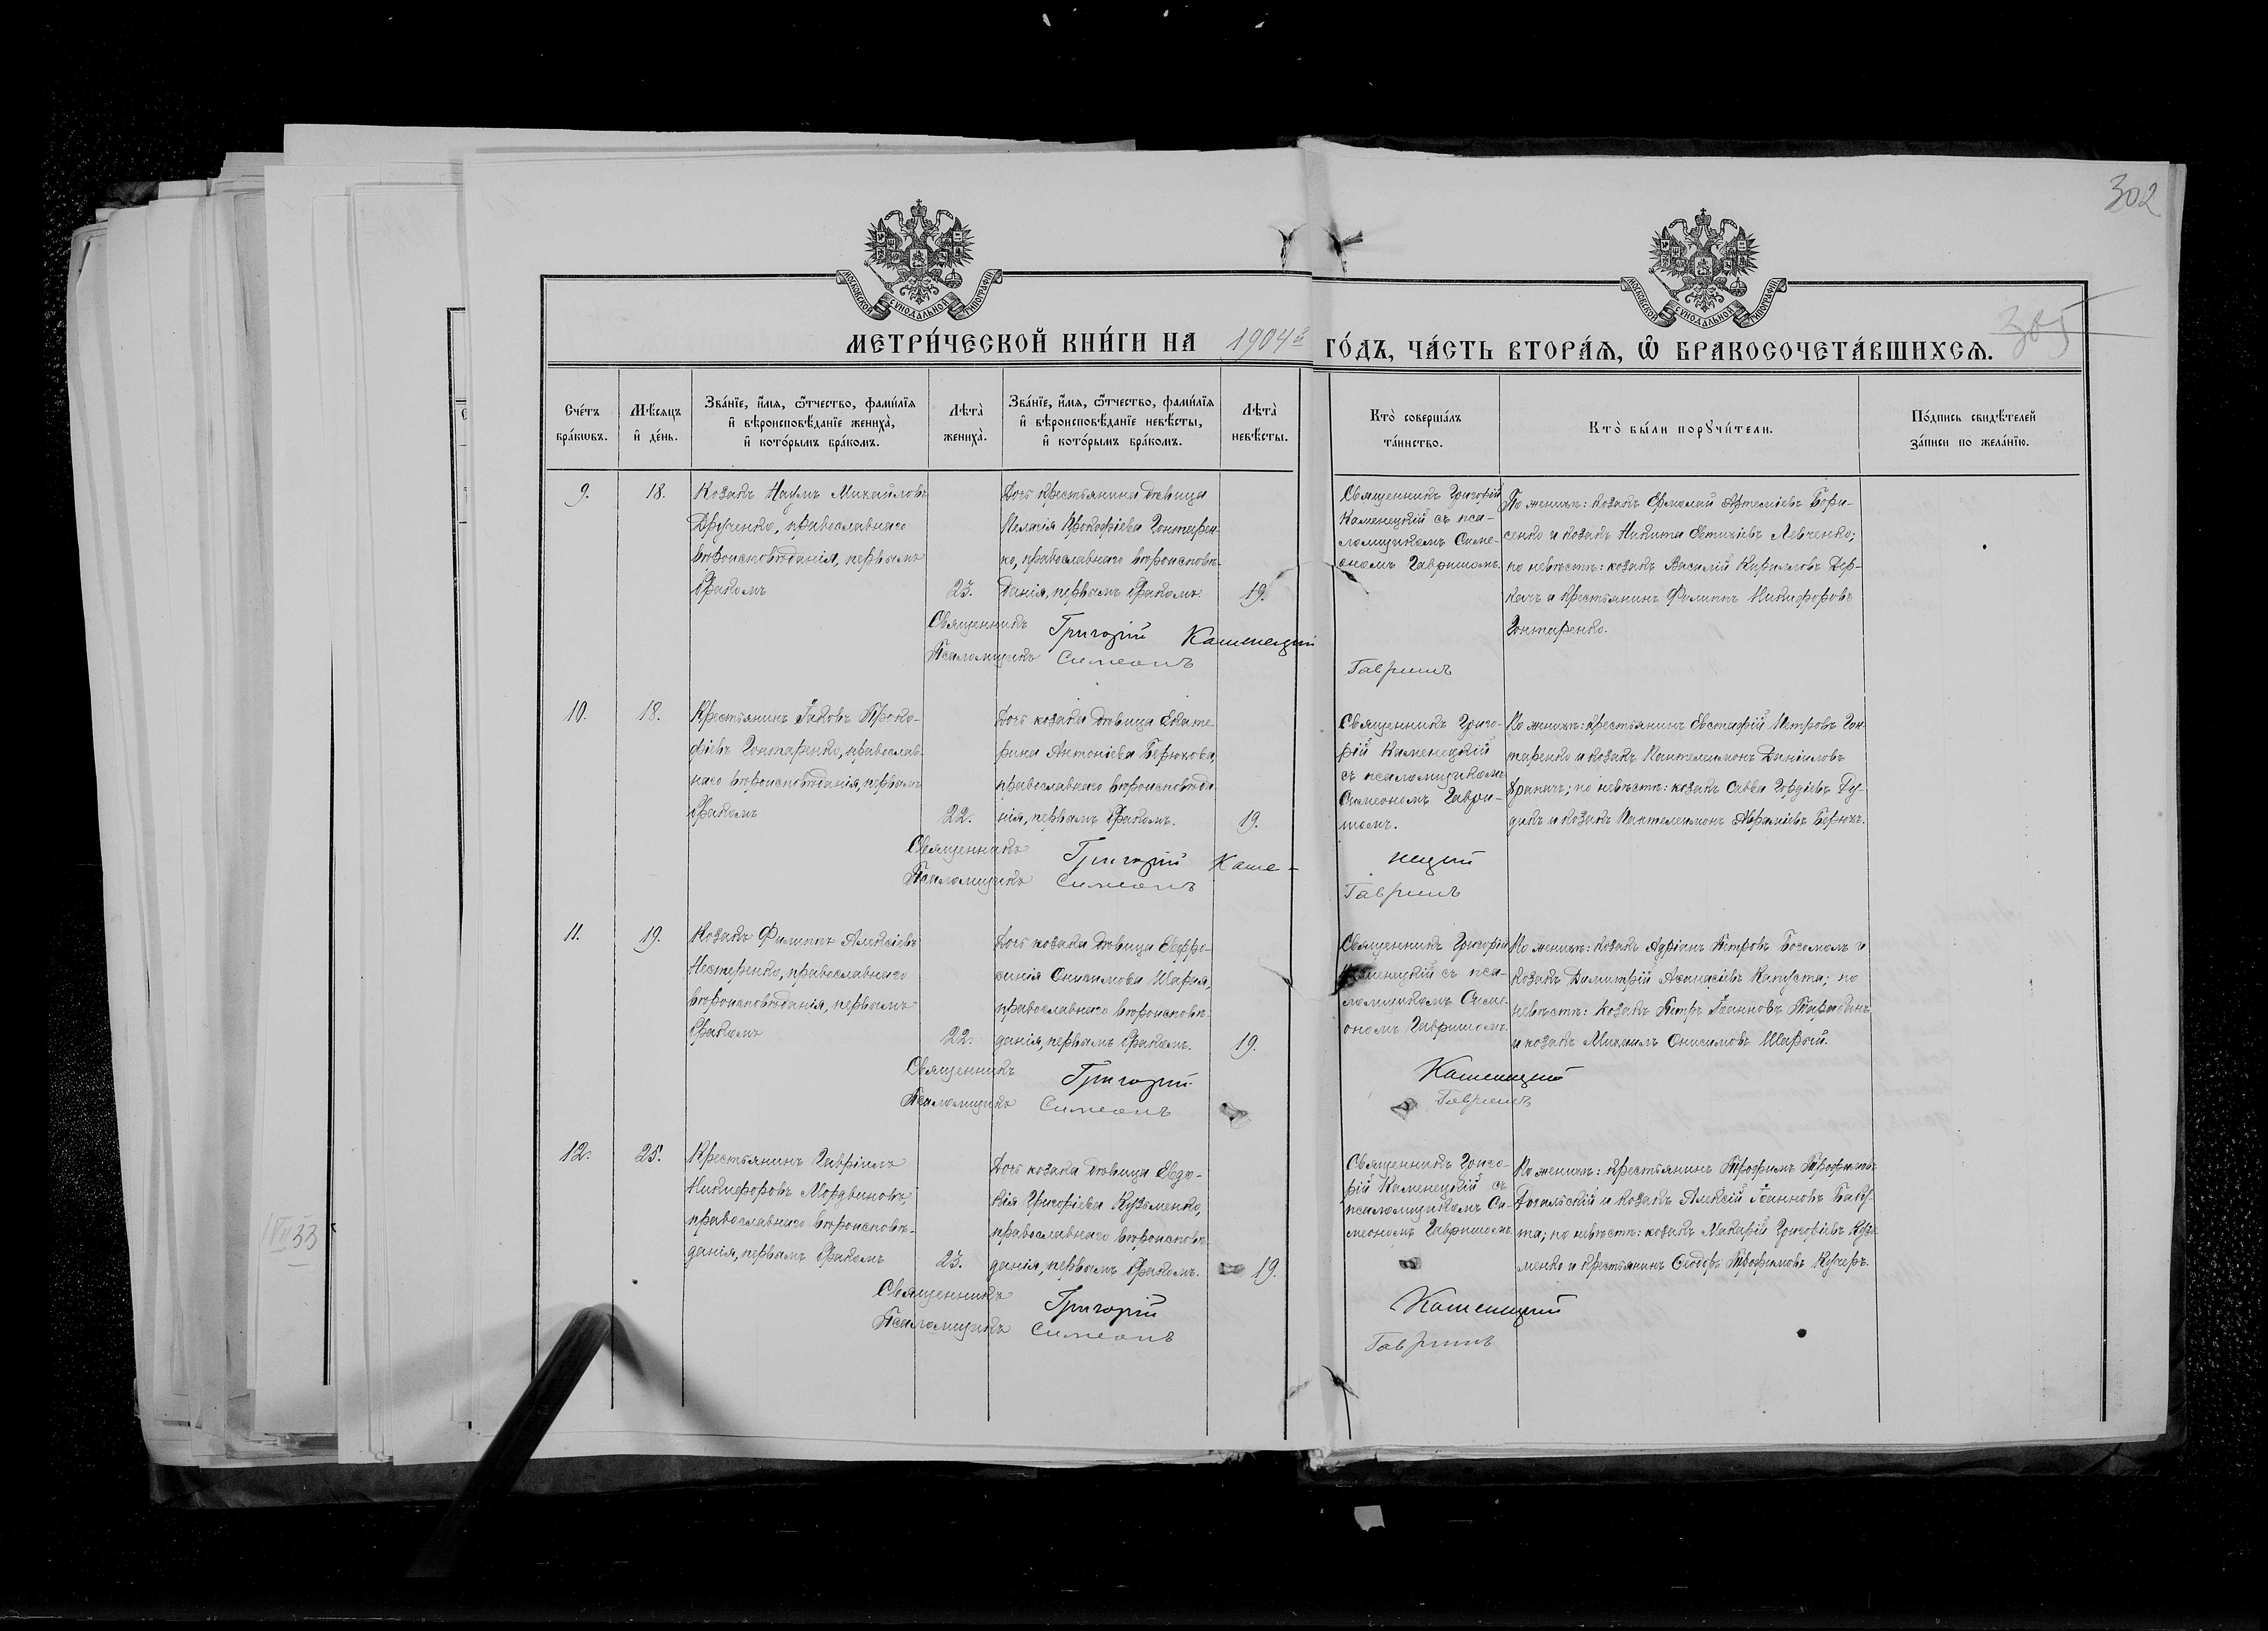 302
МОСКОВСКОЙ СУНОДАЛЬНОЙ ТИПОГРАФІИ
МОСКОВСКОЙ СУНОДАЛЬНОЙ ТИПОГРАФІИ
305
МЕТРИ́ЧЕСКОЙ КНИ́ГИ НА 1904й ГО́ДЪ, ЧА́СТЬ ВТОРА́Я, Ѡ БРАКОСОЧЕТА́ВШИХСЯ.
Сче́тъ бра́ковъ.
Мѣ́сяцъ и де́нь.
Зва́нїе, и́мя, ѻ́тчество, фами́лїя
и вѣроисповѣ́данїе жениха̀,
и кото́рымъ бра́комъ.
Лѣта̀ жениха̀.
Зва́нїе, и́мя, ѻ́тчество, фами́лїя
и вѣроисповѣ́данїе невѣ́сты,
и кото́рымъ бра́комъ.
Лѣта̀ невѣ́сты.
Кто̀ соверша́лъ
та́инство.
Кто̀ бы́ли порꙋчи́тели.
По́дпись свидѣ́телей
за́писи по жела́нїю.
9.
18.
Козакъ Наумъ Михайловъ
Друченко, православнаго
вѣроисповѣданія, первымъ
бракомъ
23.
Дочь крестьянина дѣвица
Пелагія Прокофіева Гонтарен-
ко, православнаго вѣроисповѣ-
данія, первымъ бракомъ.
19.
Священникъ Григорій
Каменецкій съ пса-
ломщикомъ Симе-
ономъ Гавришомъ.
По женихѣ: козакъ Ермолай Артеміевъ Бори-
сенко и козакъ Никита Евтихіевъ Левченко;
по невѣстѣ: козакъ Василій Кирилловъ Дер-
качъ и крестьянинъ Филиппъ Никифоровъ
Гонтаренко.
Священникъ Григорій Каменецкій
Псаломщикъ Симеонъ Гавришъ
10.
18.
Крестьянинъ Іаковъ Проко-
фіевъ Гонтаренко, православ-
наго вѣроисповѣданія, первымъ
бракомъ
22.
Дочь козака дѣвица Екате-
рина Антоніева Берюкова,
православнаго вѣроисповѣда-
нія, первымъ бракомъ.
19.
Священникъ Григо-
рій Каменецкій
съ псаломщикомъ
Симеономъ Гаври-
шомъ.
По женихѣ: крестьянинъ Евстафій Петровъ Гон-
таренко и козакъ Пантелеимонъ Даніиловъ
Драпачъ; по невѣстѣ: козакъ Савва Гордіевъ Ду-
дикъ и козакъ Пантелеимонъ Абраміевъ Берюкъ.
Священникъ Григорій Каме-нецкій
Псаломщикъ Симеонъ Гавришъ
11.
19.
Козакъ Филиппъ Алексіевъ
Нестеренко, православнаго
вѣроисповѣданія, первымъ
бракомъ
22.
Дочь козака дѣвица Евфро-
синія Онисимова Шарая,
православнаго вѣроисповѣ-
данія, первымъ бракомъ.
19.
Священникъ Григорій
Каменецкій съ пса-
ломщикомъ Симе-
ономъ Гавришомъ.
По женихѣ: козакъ Адріанъ Петровъ Богомолъ и
козакъ Димитрій Аѳанасіевъ Капуста; по
невѣстѣ: козакъ Петръ Іоанновъ
и козакъ Михаилъ Онисимовъ Шарый.
Священникъ Григорій Каменецкій
Псаломщикъ Симеонъ Гавришъ
12.
25.
Крестьянинъ Гавріилъ
Никифоровъ Мордвиновъ,
православнаго вѣроисповѣ-
данія, первымъ бракомъ
23.
Дочь козака дѣвица Евдо-
кія Григоріева Кузьменко,
православнаго вѣроисповѣ-
данія, первымъ бракомъ.
19.
Священникъ Григо-
рій Каменецкій съ
псаломщикомъ Си-
меономъ Гавришомъ.
По женихѣ: крестьянинъ Трофимъ Трофимовъ
и козакъ Алексій Іоанновъ Баку-
та; по невѣстѣ: козакъ Макарій Григоріевъ Кузь-
менко и крестьянинъ Ѳеодоръ Трофимовъ Кучеръ.
Священникъ Григорій Каменецкій
Псаломщикъ Симеонъ Гавришъ